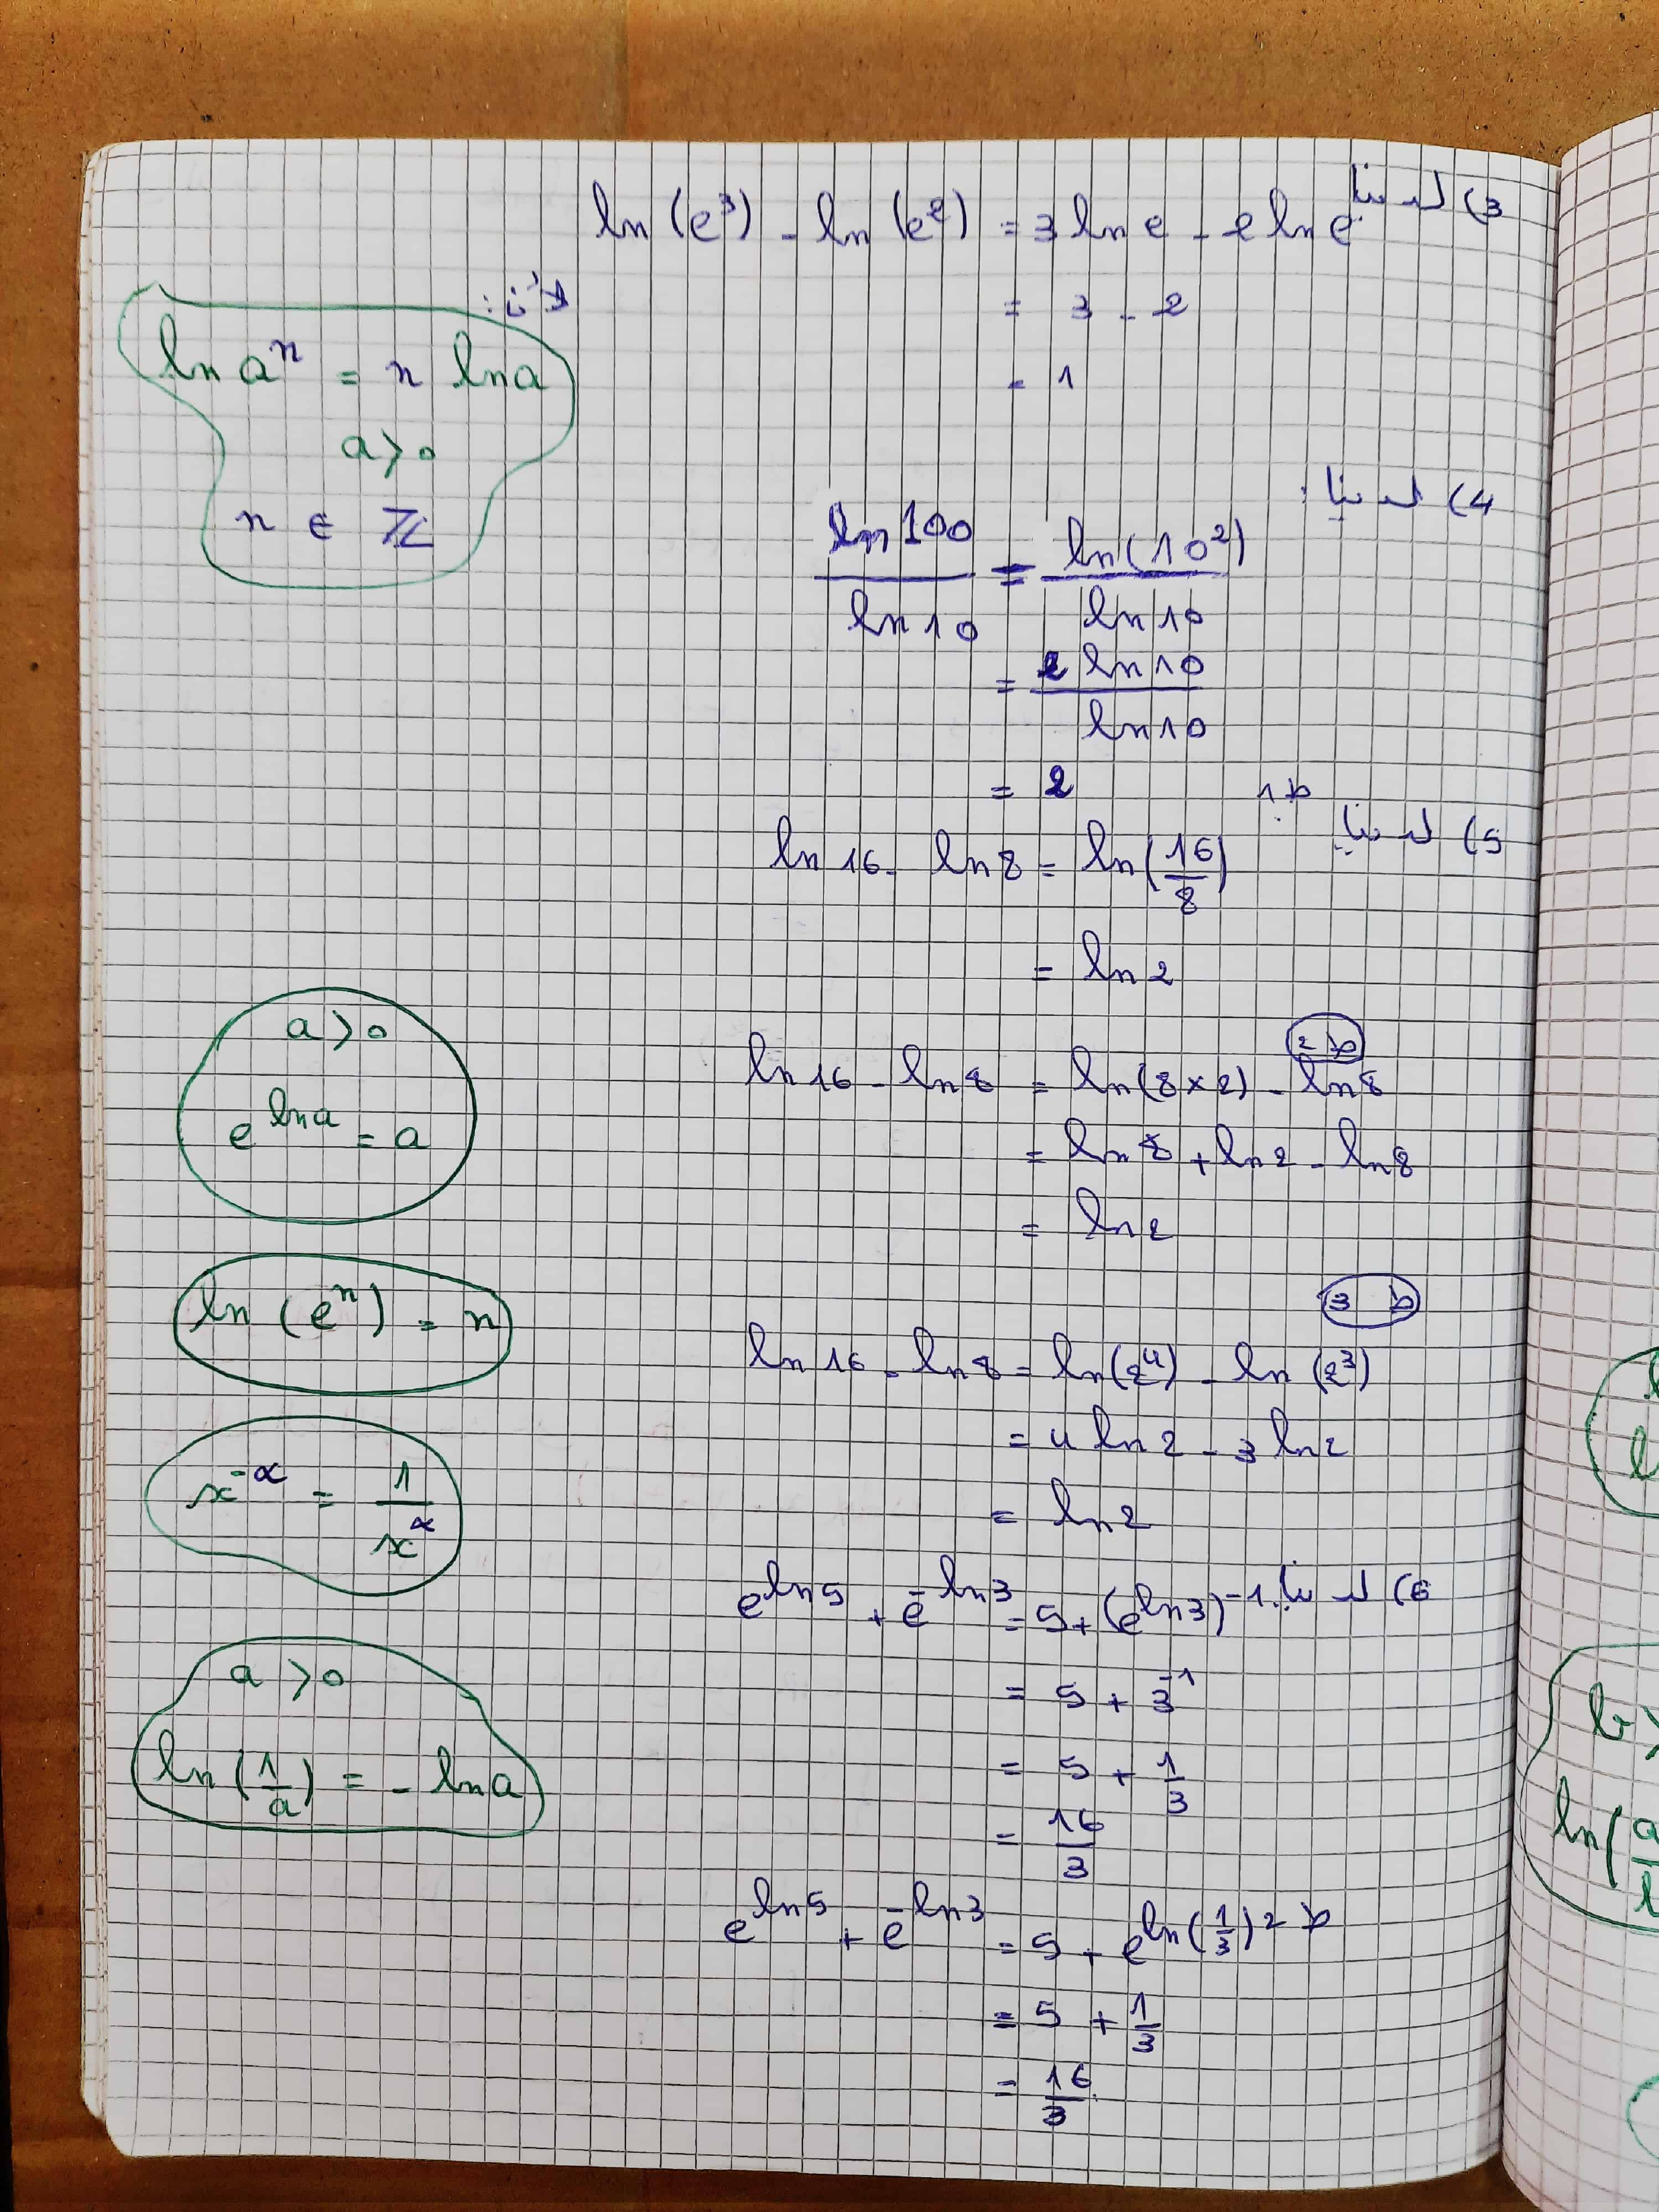 3) لدينا
ln(e³) - ln(e²) = 3 ln e - 2 ln e
= 3 - 2
= 1
لأن :
ln aⁿ = n ln a
a > 0
n ∈ ℤ
4) لدينا :
ln 100 / ln 10 = ln(10²) / ln 10
= 2 ln 10 / ln 10
= 2
5) لدينا
ط 1
ln 16 - ln 8 = ln(16/8)
= ln 2
ط 2
ln 16 - ln 8 = ln(8×2) - ln 8
= ln 8 + ln 2 - ln 8
= ln 2
a > 0
e^(ln a) = a
ln(eⁿ) = n
ط 3
ln 16 - ln 8 = ln(2⁴) - ln(2³)
= 4 ln 2 - 3 ln 2
= ln 2
x^(-α) = 1/x^α
6) لدينا
e^(ln 5) + e^(-ln 3) = 5 + (e^(ln 3))^(-1)
= 5 + 3^(-1)
= 5 + 1/3
= 16/3
a > 0
ln(1/a) = - ln a
ط 2
e^(ln 5) + e^(-ln 3) = 5 + e^(ln(1/3))
= 5 + 1/3
= 16/3